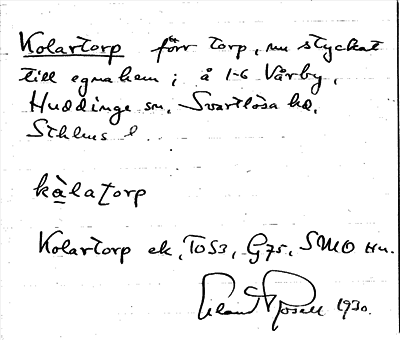 Kolartorp förr torp, nu styckat
till egnahem; å 1-6 Vårby,
Huddinge sn. Svartlösa hd.
Sthlms l.
kàlatorp
Kolartorp ek, TOS3, G75, SMO Hu.
1930.